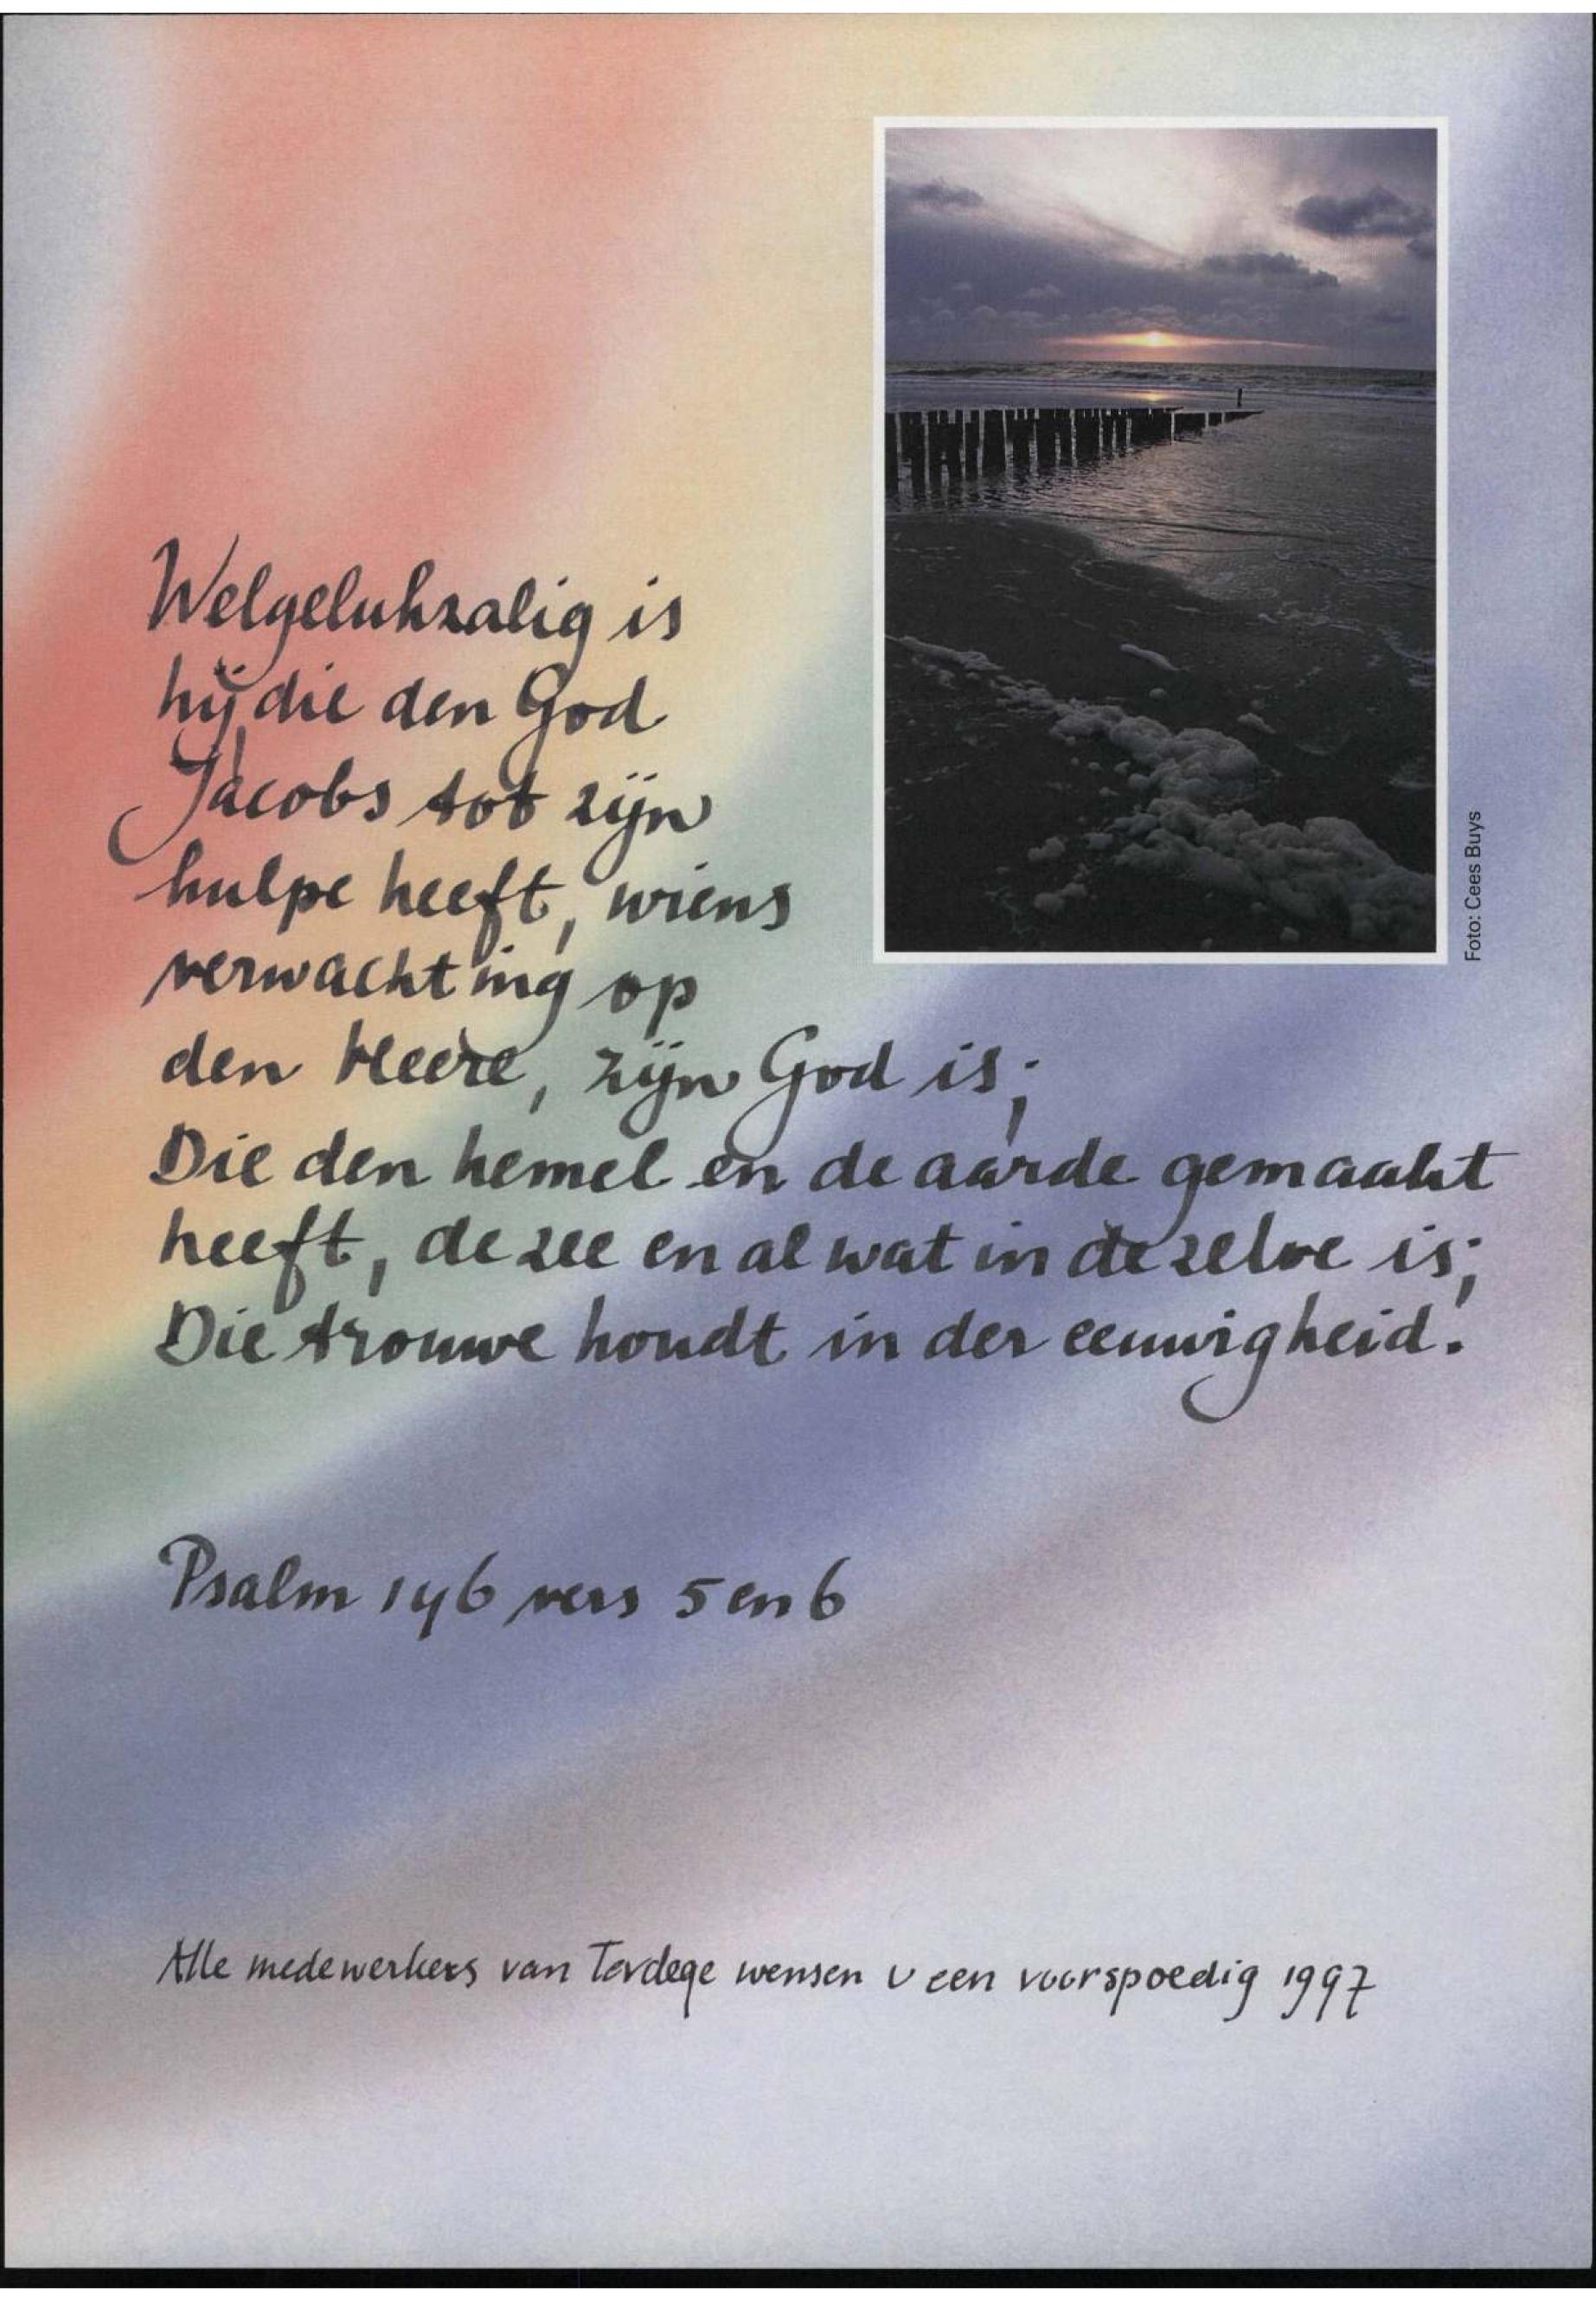 Welgelukzalig is
hij die den God
Jacobs tot zijn
hulpe heeft, wiens
verwachting op
den Heere, zijn God is;
Die den hemel en de aarde gemaakt
heeft, de zee en al wat in dezelve is;
Die trouwe houdt in der eeuwigheid.
Foto: Cees Buys
Psalm 146 vers 5 en 6
Alle medewerkers van Terdege wensen U een voorspoedig 1997